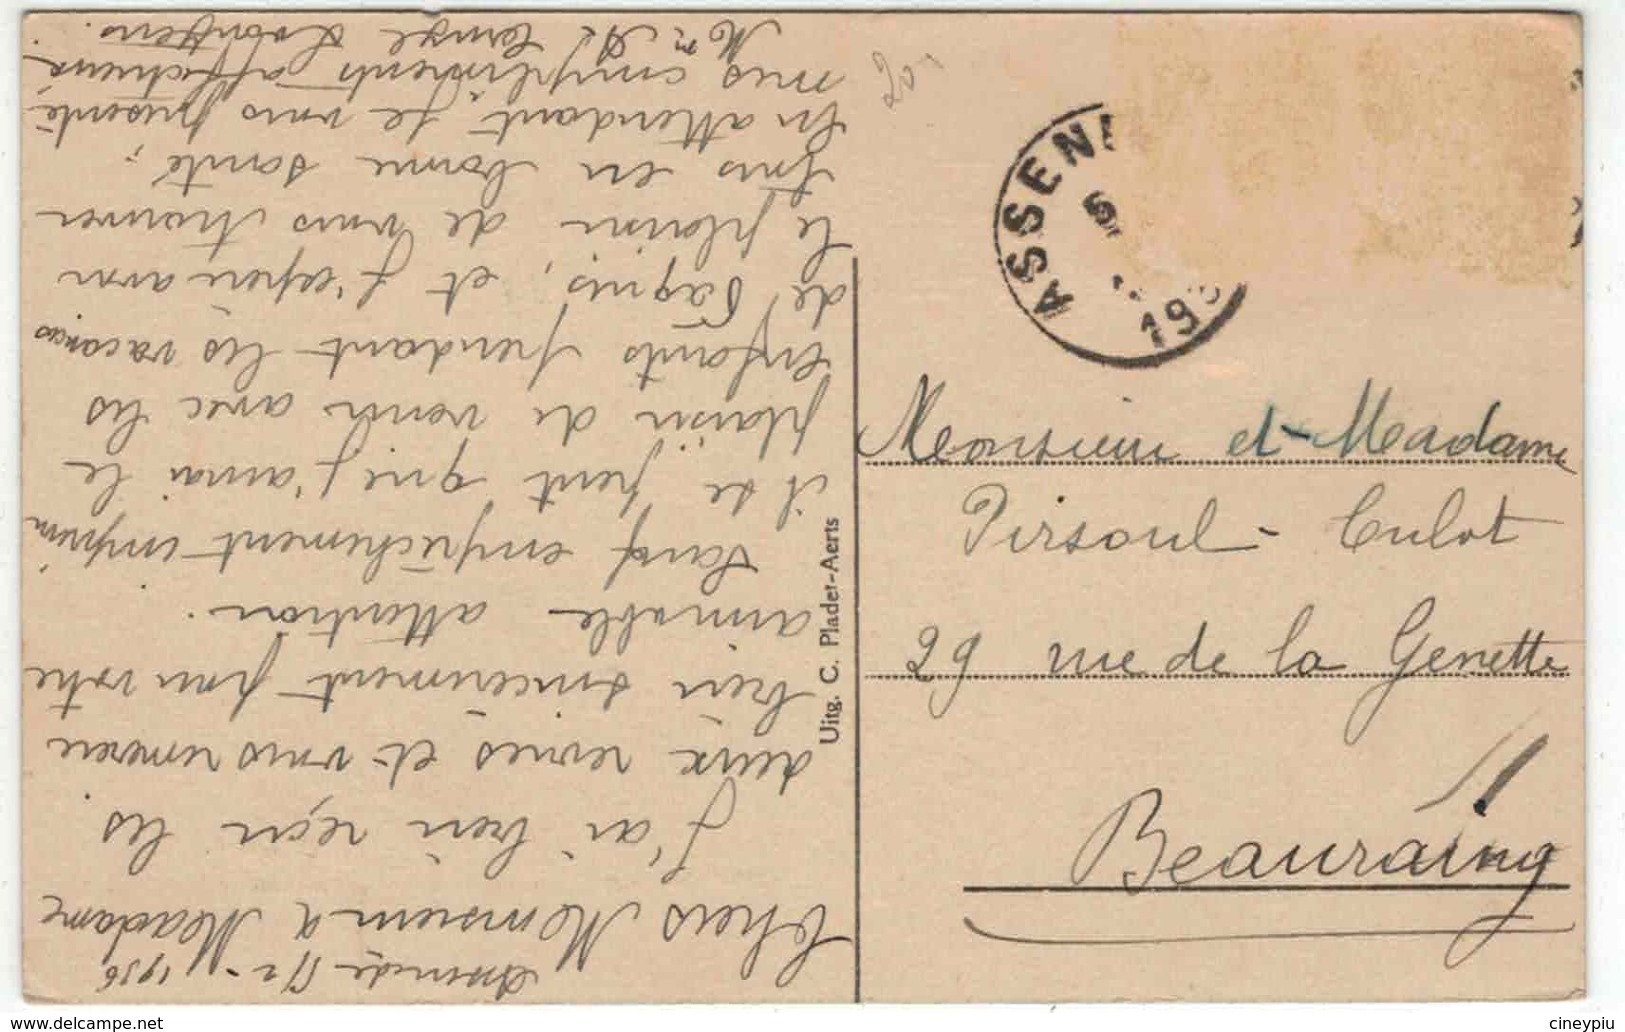 Assenede 5/2 - 1936
Chers Monsieur & Madame
J'ai bien reçu les
deux revues et vous remercie
bien sincèrement pour votre
aimable attention.
Sauf empêchement imprévu
il se peut que j'aurai le
plaisir de venir avec les
enfants pendant les vacances
de Pâques, et j'espère avoir
le plaisir de vous trouver
tous en bonne santé.
En attendant je vous présente
mes compliments affectueux
Uitg. C. Pladet-Aerts
20.
ASSENE
5
193
Monsieur et Madame
Pirsoul - Culot
29 rue de la Genette
Beauraing
www.delcampe.net
cineypiu